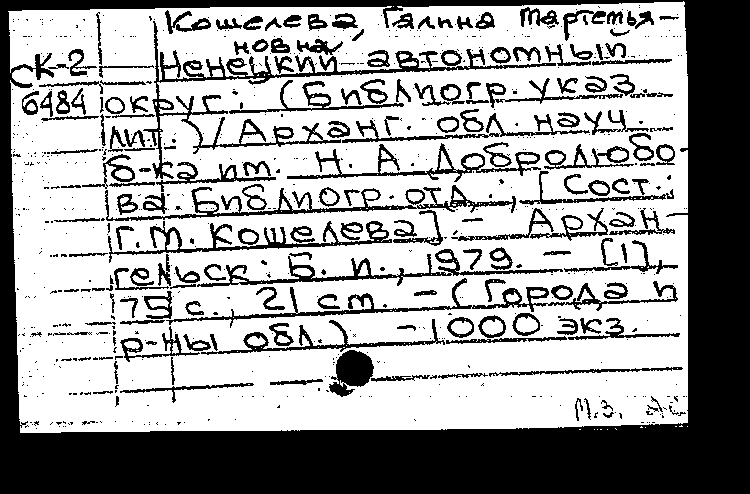 Кошелева, Галина Мартемья-
новна
СК-2 Ненецкий автономный
6484 округ: (Библиогр. указ.
лит.)/Арханг. обл. науч.
б-ка им. Н. А. Добролюбо-
ва. Библиогр. отд.; [Сост.:
Г.М. Кошелева]. - Архан-
гельск: Б. и., 1979. - [1],
75 с.; 21 см. - (Города и
р-ны обл.) - 1000 экз.
М.З. АС